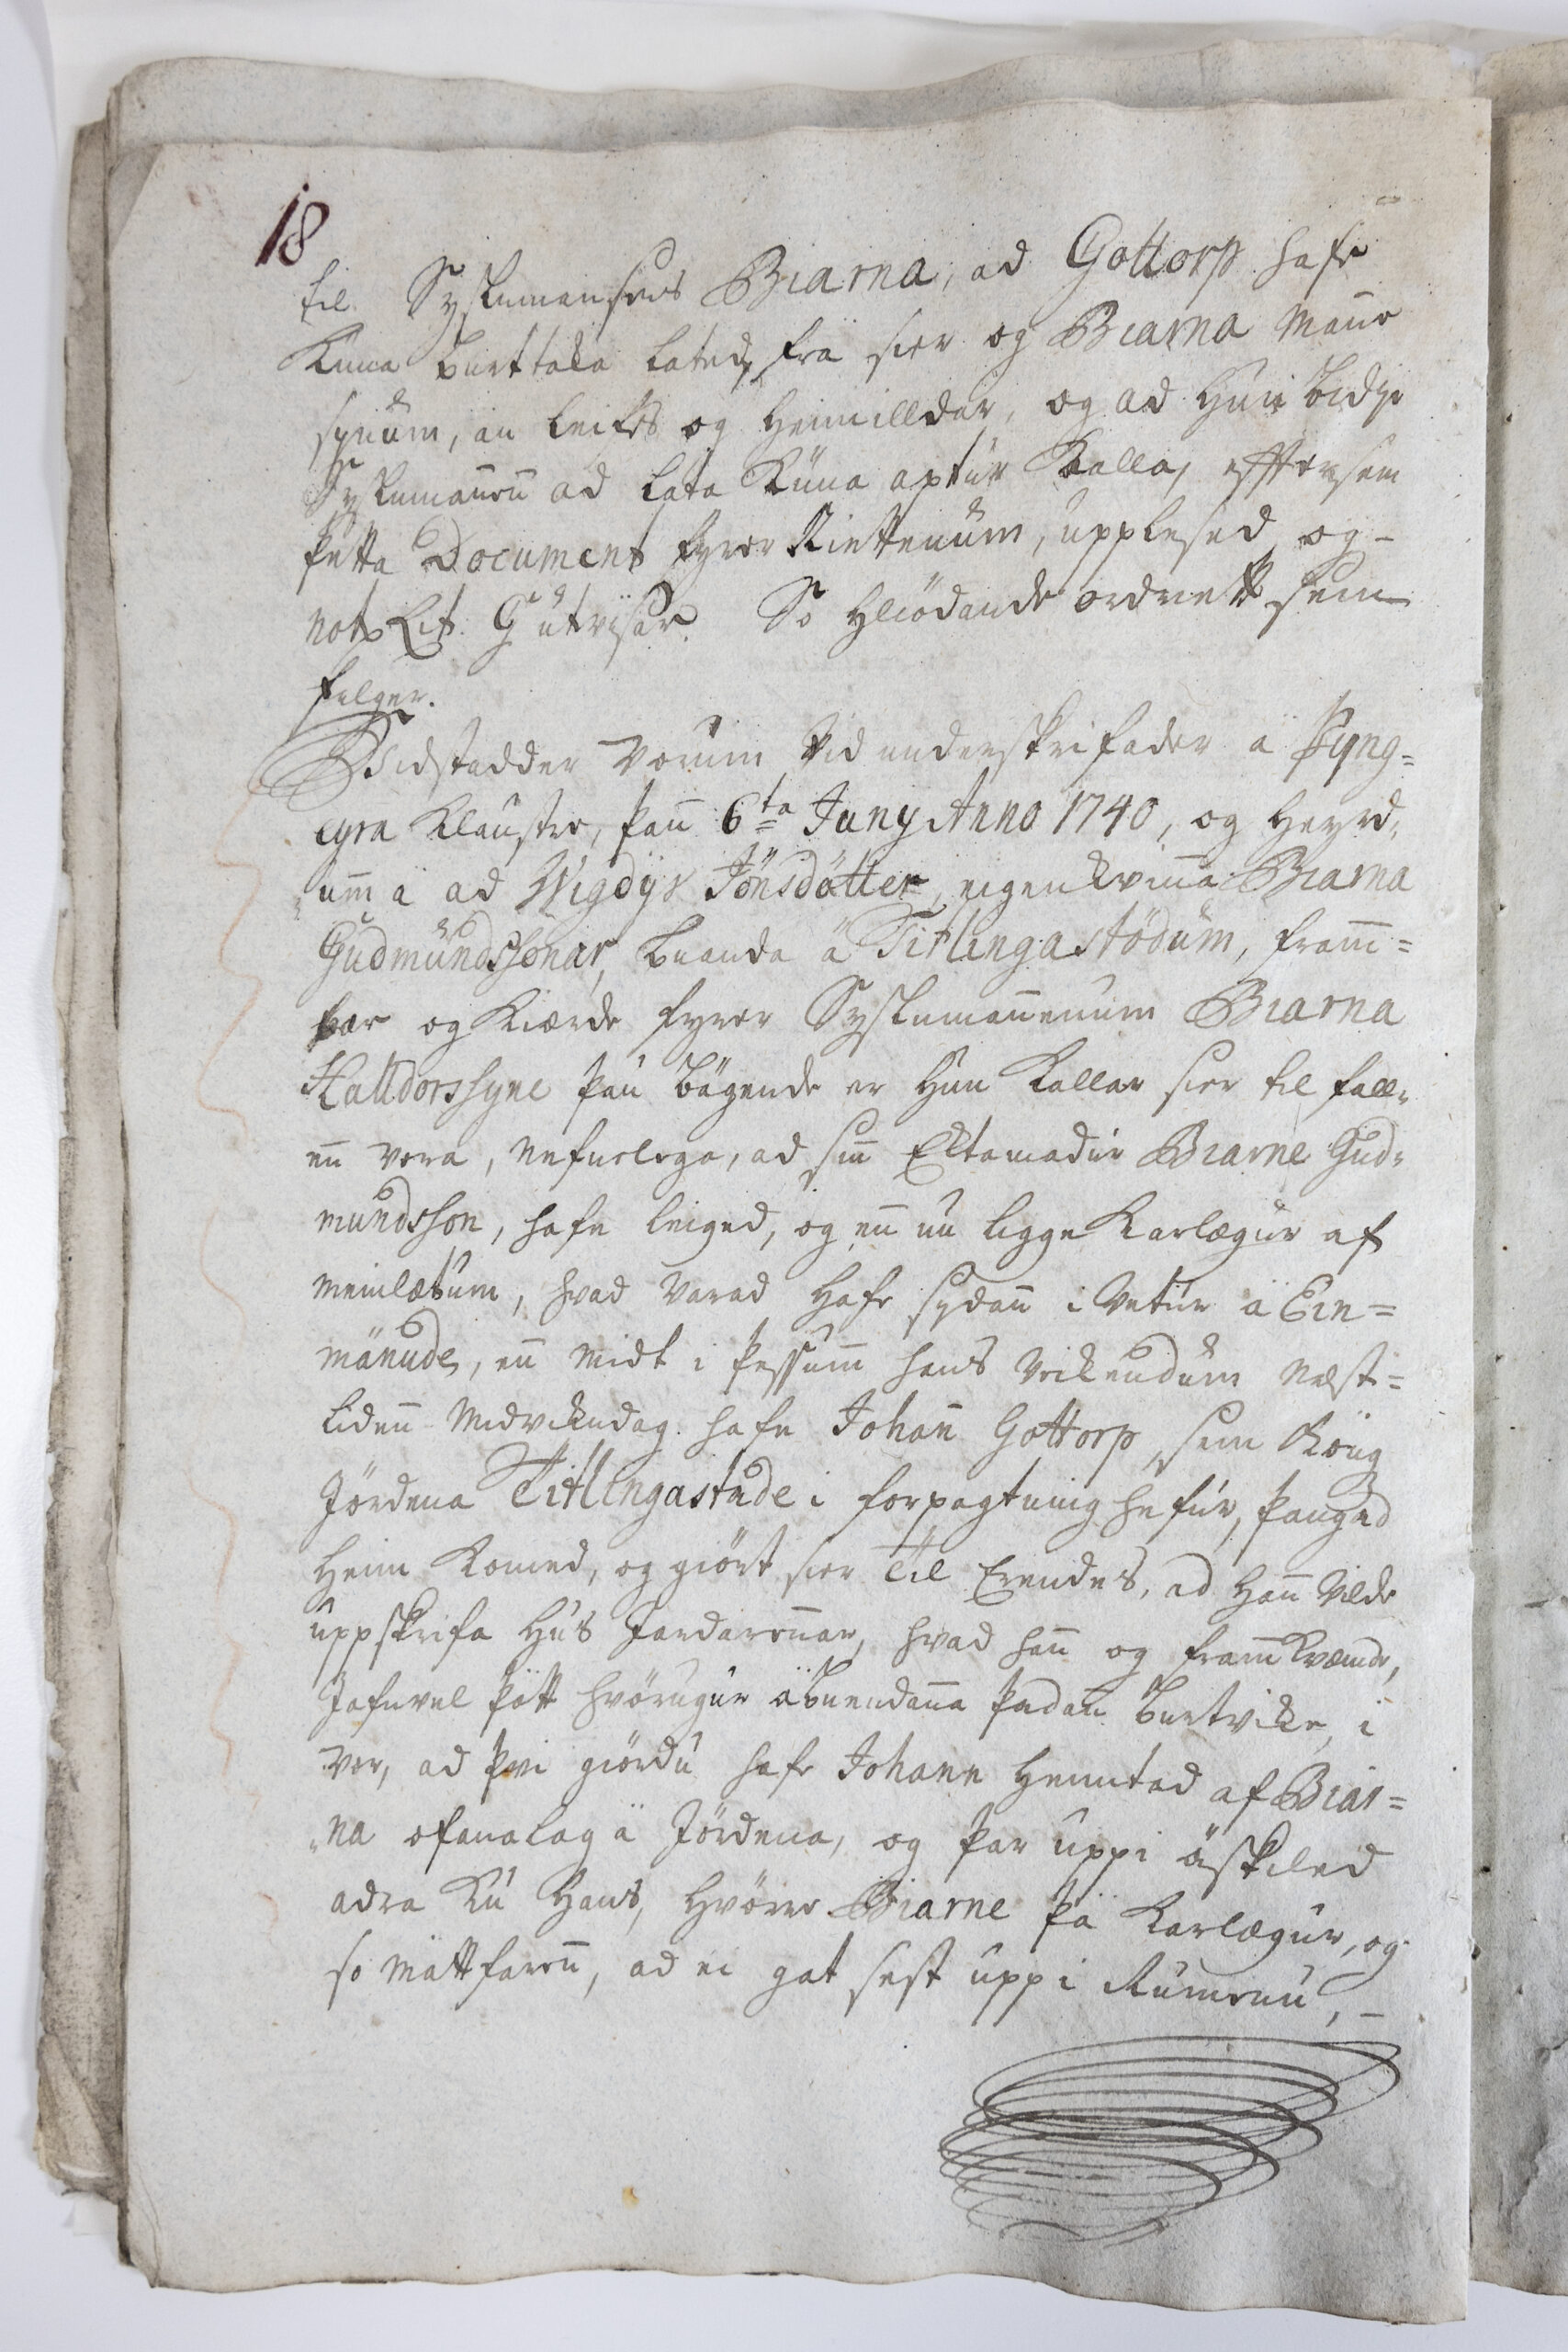 18
til Syslumansens Biarna, ad Gottorp hafe
Kuna burttaka lated, frä sier og Biarna manne
synum, än leifes og heimilldar, og ad hun bidie
Syslumannen ad lata Kuna aptur kalla, effter sem
þetta Document fyrer Riettenum, upplesed og -
not Lit. G ütvïsar. So hliödande ordrett sem
fylger.
Vidstadder vorum vid underskrifader ä Þyng=
eyra klaustre, þann 6ta Juny Anno 1740, og heyrd„
„um ä ad Wigdÿs Jönsdötter, eigenkvinna Biarna
Gudmundssonar, buanda ä Titlingastödum, framm=
bar og kiærde fyrer Syslumannenum Biarna
Halldorssyne þau bägende er hun kallar sier til fall„
en vera, nefnelega, ad sinn Ektamadur Biarne Gud„
mundsson, hafe leiged, og enn nu ligge karlægur af
meinlætum, hvad varad hafe sydann i vetur ä Ein=
mänude, enn midt i þessumm hans veikendum næst=
liden midvikudag hafe Johann Gottorp, sem Kong
Jördena Titlingastade i forpagtning hefur, þangad
heim komed, og giört sier til Erendes, ad hann vilde
uppskrifa hus Jardarennar, hvad hann og framkvæmde,
Jafnvel þött hvörugur äbuendanna þadan burtvike i
vor, ad þvi giördu hafe Johann heimtad af Biar=
„na ofanalag ä Jördena, og þar uppi äskiled
adra Ku hans, hvörre Biarne þä karlægur, og
so mättfarenn, ad ei gat sest uppi Rumenu, -